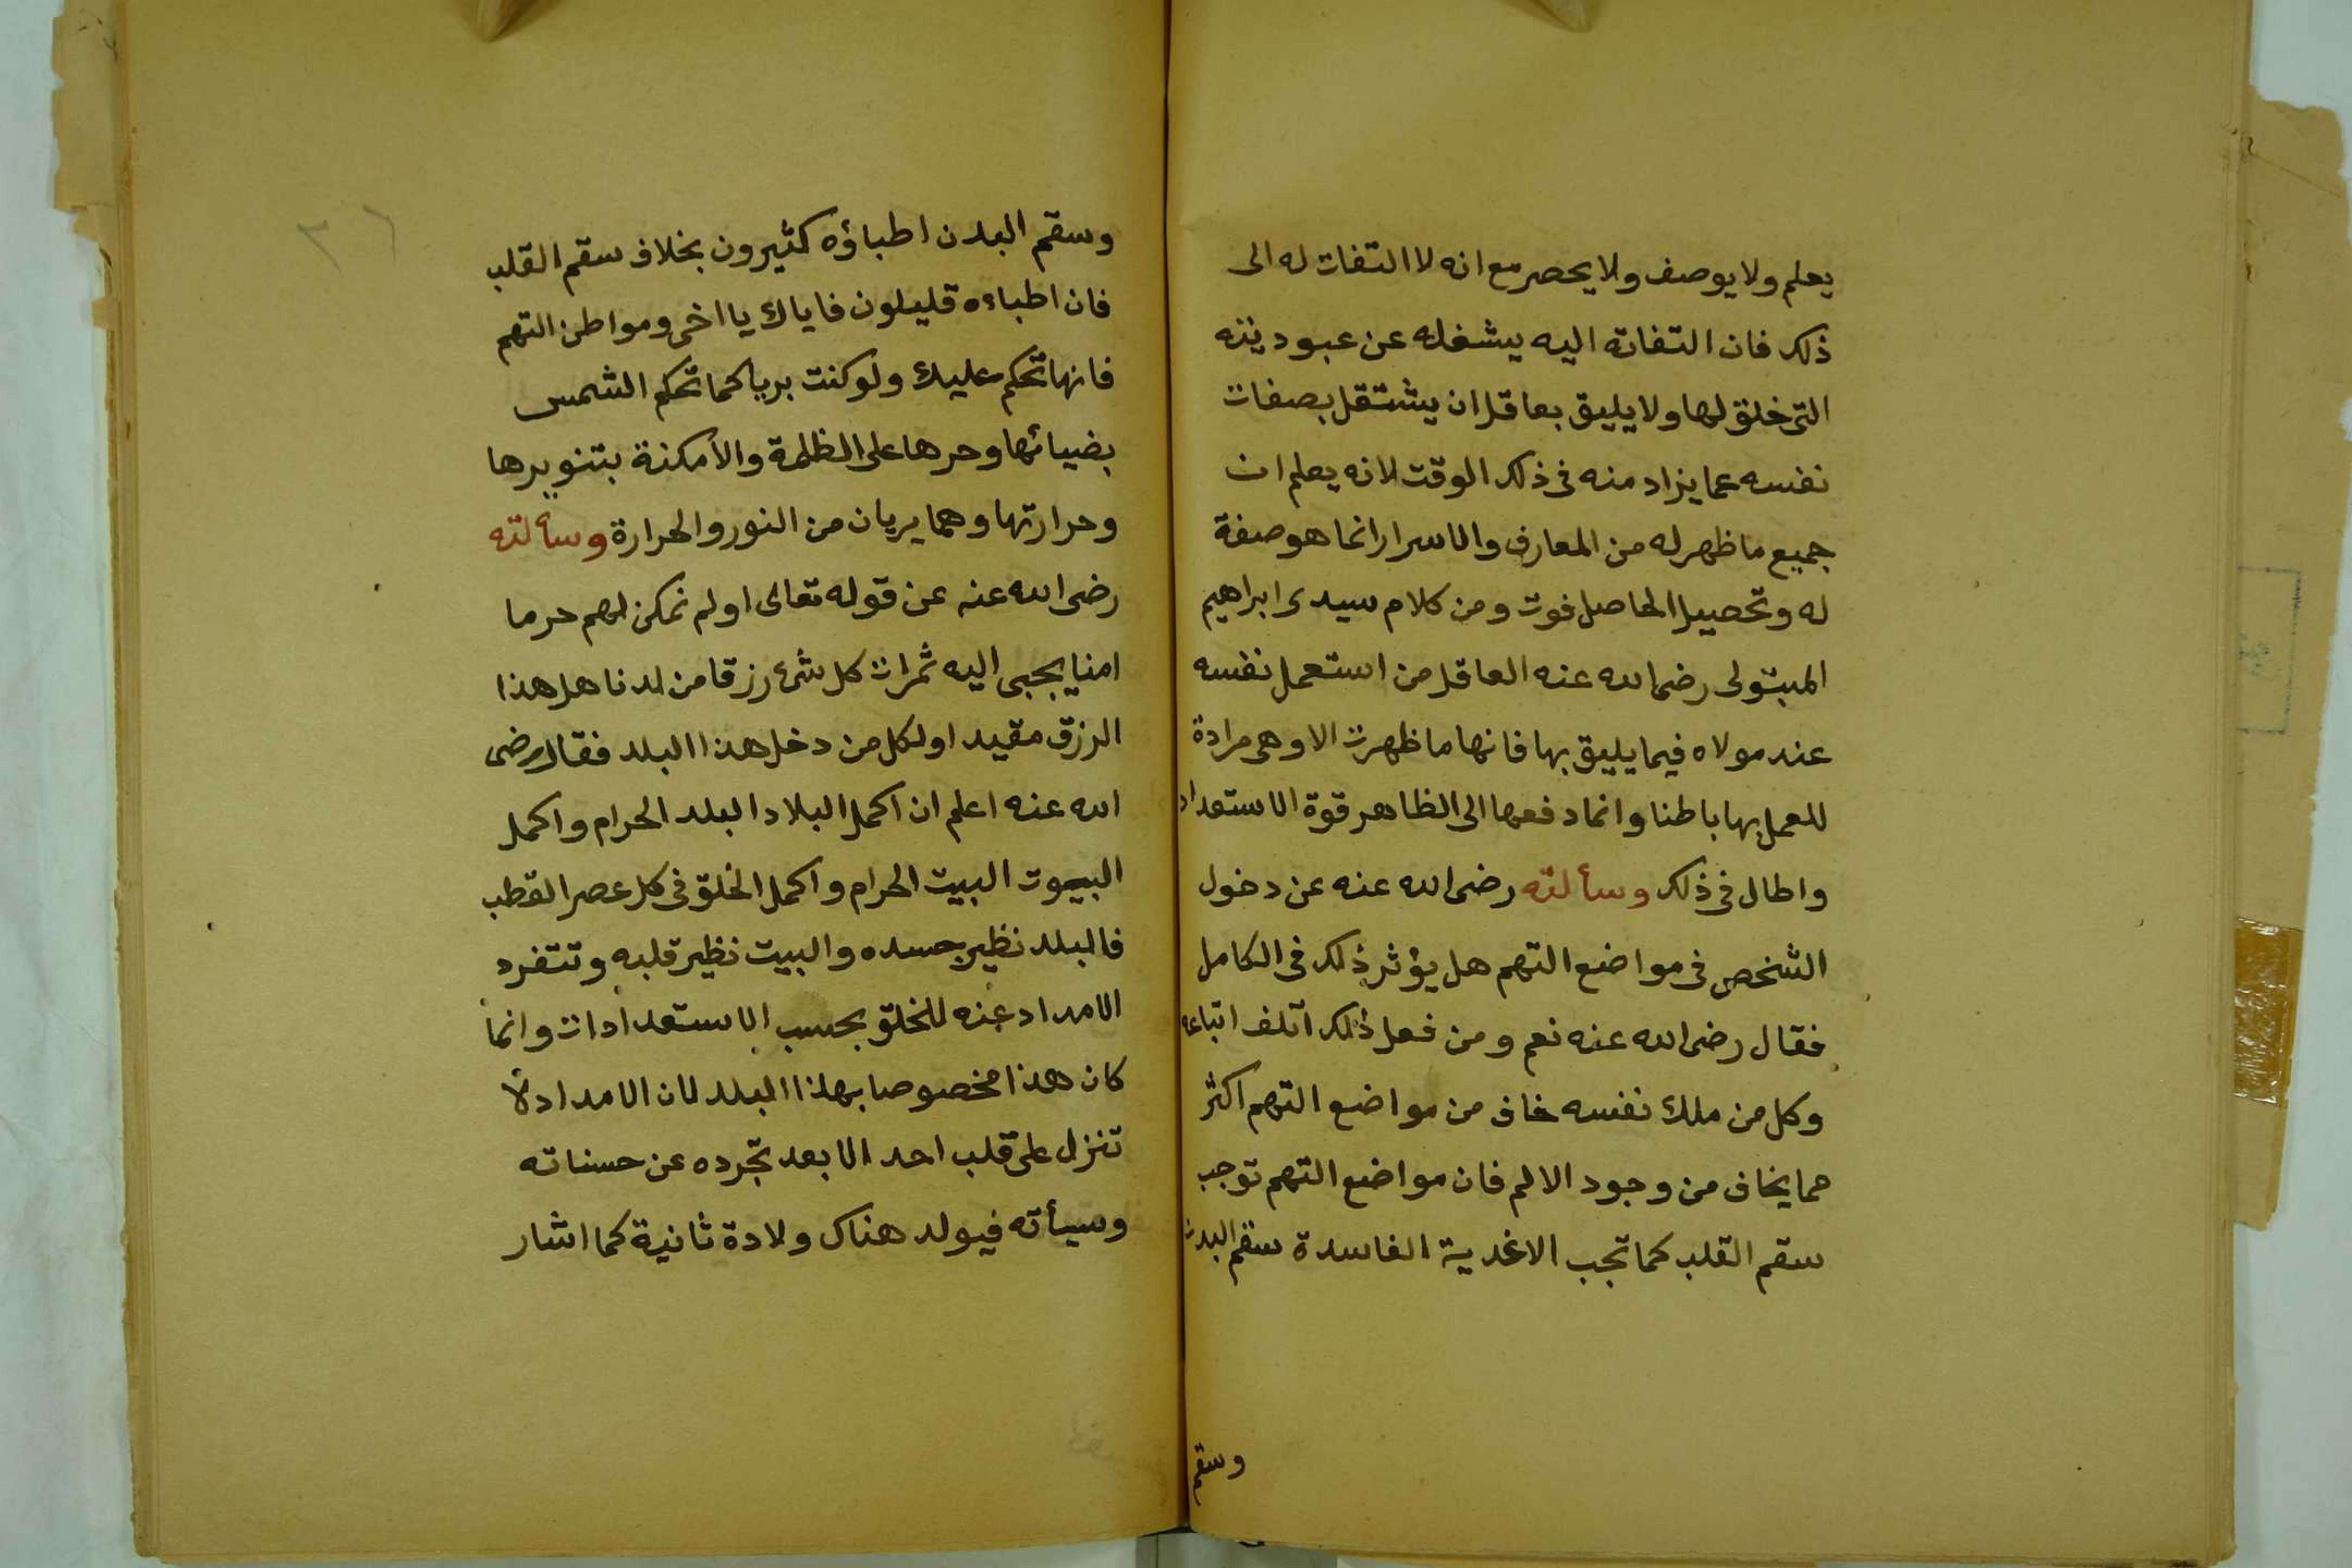 يعلم ولا يوصف ولا يحصر مع انه لا التفات له الى
ذلك فان التفاته اليه يشغله عن عبوديته
التى خلق لها ولا يليق بعاقل ان يشتغل بصفات
نفسه عما يراد منه فى ذلك الوقت لانه يعلم ان
جميع ما ظهر له من المعارف والاسرار انما هو صفة
له وتحصيل الحاصل فوت ومن كلام سيدى ابراهيم
المبتولى رضى الله عنه العاقل من استعمل نفسه
عند مولاه فيما يليق بها فانها ما ظهرت الا وهى مرادة
للعمل بها باطنا وانما دفعها الى الظاهر قوة الاستعداد
واطال فى ذلك وسألته رضى الله عنه عن دخول
الشخص فى مواضع التهم هل يؤثر ذلك فى الكامل
فقال رضى الله عنه نعم ومن فعل ذلك اتلف اتباعه
وكل من ملك نفسه خاف من مواضع التهم اكثر
مما يخاف من وجود الالم فان مواضع التهم توجب
سقم القلب كما تجب الاغدية الفاسدة سقم البدن
وسقم
٣٦
وسقم البدن اطباؤه كثيرون بخلاف سقم القلب
فان اطباءه قليلون فاياك يا اخى ومواطن التهم
فانها تحكم عليك ولو كنت بريا كما تحكم الشمس
بضيائها وحرها على الظلمة والأمكنة بتنويرها
وحرارتها وهما يريان من النور والحرارة وسألته
رضى الله عنه عن قوله تعالى اولم نمكن لهم حرما
امنا يجبى اليه ثمرات كل شئ رزقا من لدنا هل هذا
الرزق مقيد او لكل من دخل هذا البلد فقال رضى
الله عنه اعلم ان اكمل البلاد البلد الحرام واكمل
البيوت البيت الحرام واكمل الخلق فى كل عصر القطب
فالبلد نظير جسده والبيت نظير قلبه وتتفرد
الامداد عنه للخلق بحسب الاستعدادات وانما
كان هذا مخصوصا بهذا البلد لان الامداد لا
تنزل على قلب احد الا بعد تجرده عن حسناته
وسيأته فيولد هناك ولادة ثانية كما اشار